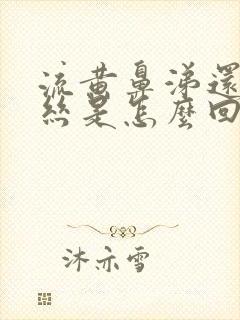 流黄鼻涕還
絲是怎麼回
沐亦雪